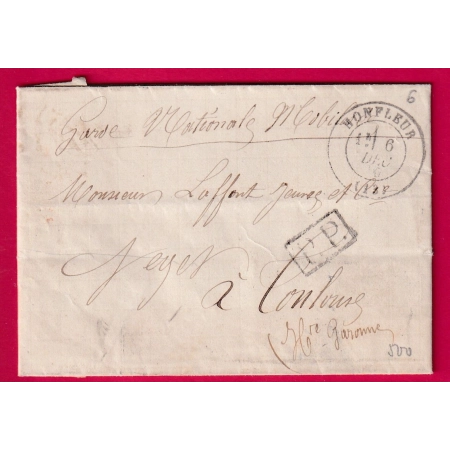 6
Garde Nationale Mobile
HONFLEUR
1E 6
DEC
Monsieur Laffont jeune et
P.P.
à Toulouse
(Hte Garonne)
500